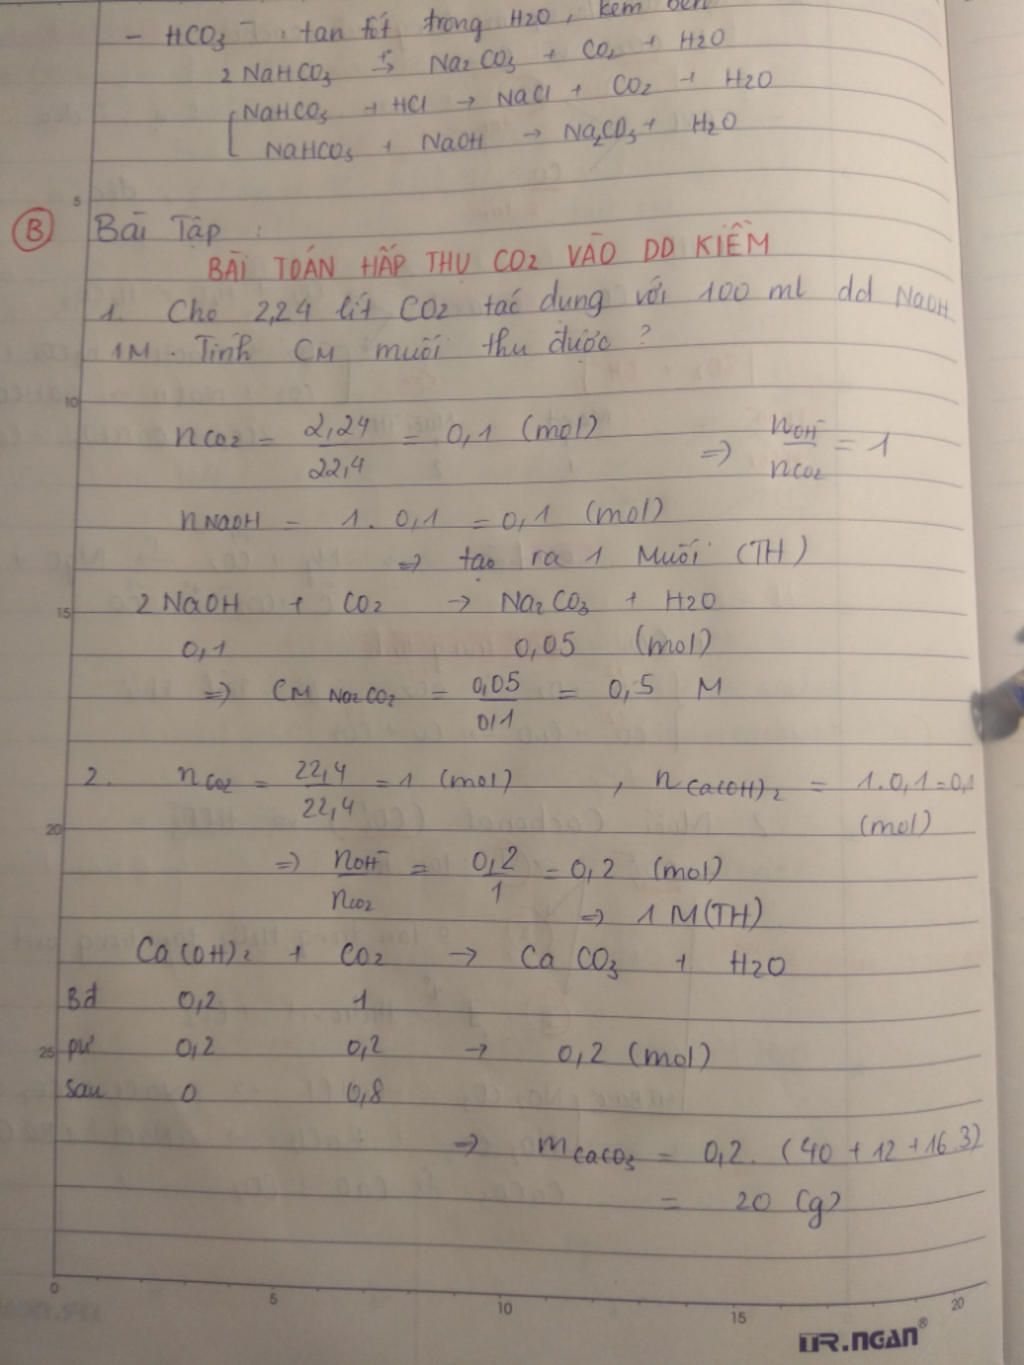 - HCO3⁻ : tan tốt trong H2O, kém bền
2 NaHCO3 →(t°) Na2CO3 + CO2 + H2O
NaHCO3 + HCl → NaCl + CO2 + H2O
NaHCO3 + NaOH → Na2CO3 + H2O
5
B Bài Tập :
BÀI TOÁN HẤP THỤ CO2 VÀO DD KIỀM
1. Cho 2,24 lít CO2 tác dụng với 100 ml dd NaOH
1M. Tính CM muối thu được ?
10
nCO2 = 2,24/22,4 = 0,1 (mol) => nOH⁻/nCO2 = 1
nNaOH = 1. 0,1 = 0,1 (mol)
=> tạo ra 1 Muối (TH)
15 2 NaOH + CO2 → Na2CO3 + H2O
0,1 0,05 (mol)
=> CM Na2CO2 = 0,05/0,1 = 0,5 M
2. nCO2 = 22,4/22,4 = 1 (mol) , nCa(OH)2 = 1.0,1=0,1
20 (mol)
=> nOH⁻/nCO2 = 0,2/1 = 0,2 (mol)
=> 1 M(TH)
Ca(OH)2 + CO2 → CaCO3 + H2O
Bđ 0,2 1
25 pư 0,2 0,2 → 0,2 (mol)
sau 0 0,8
=> mCaCO3 = 0,2. (40 + 12 + 16.3)
= 20 (g)
0 5 10 15 20
TR.NGAN®